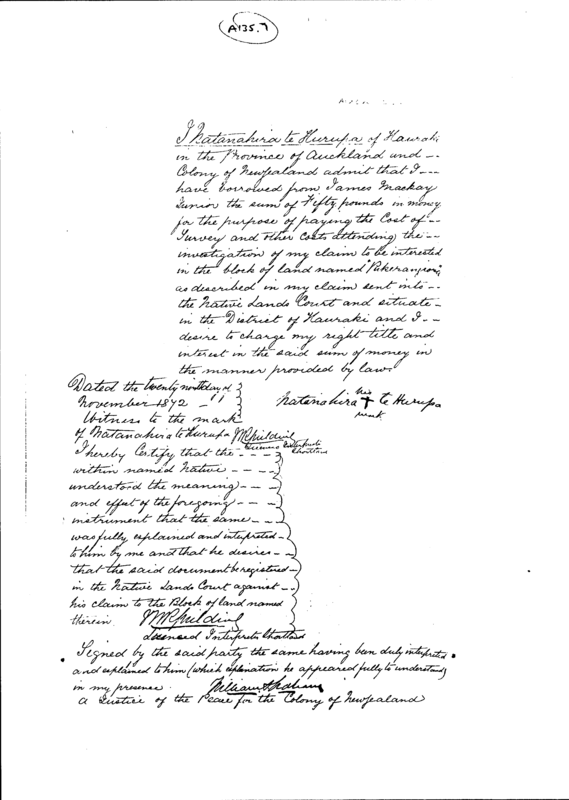 A135.7
I Natanahira te Hurupa of Hauraki
in the Province of Auckland and --
Colony of New Zealand admit that I --
have borrowed from James Mackay
Junior the sum of Fifty pounds in money
for the purpose of paying the Cost of --
Survey and other Costs attending the --
investigation of my claim to be interested
in the block of land named
as described in my claim sent into --
the Native Lands Court and situate -
in the District of Hauraki and I --
desire to charge my right title and
interest in the said sum of money in
the manner provided by law
Dated the twenty day of
November 1872
Natanahira his + mark te Hurupa
Witness to the mark
of Natanahira te Hurupa
Licensed Interpreter
Shortland
I hereby Certify that the - - -
within named Native - - - -
understood the meaning - - -
and effect of the foregoing - - -
instrument that the same - -
was fully explained and interpreted -
to him by me and that he desires - -
that the said document be registered -
in the Native Lands Court against - -
his claim to the Block of land named
therein
Licensed Interpreter Shortland
Signed by the said party the same having ben duly interpreted
and explained to him (which explanation he appeared fully to understand)
in my presence. William
A Justice of the Peace for the Colony of New Zealand